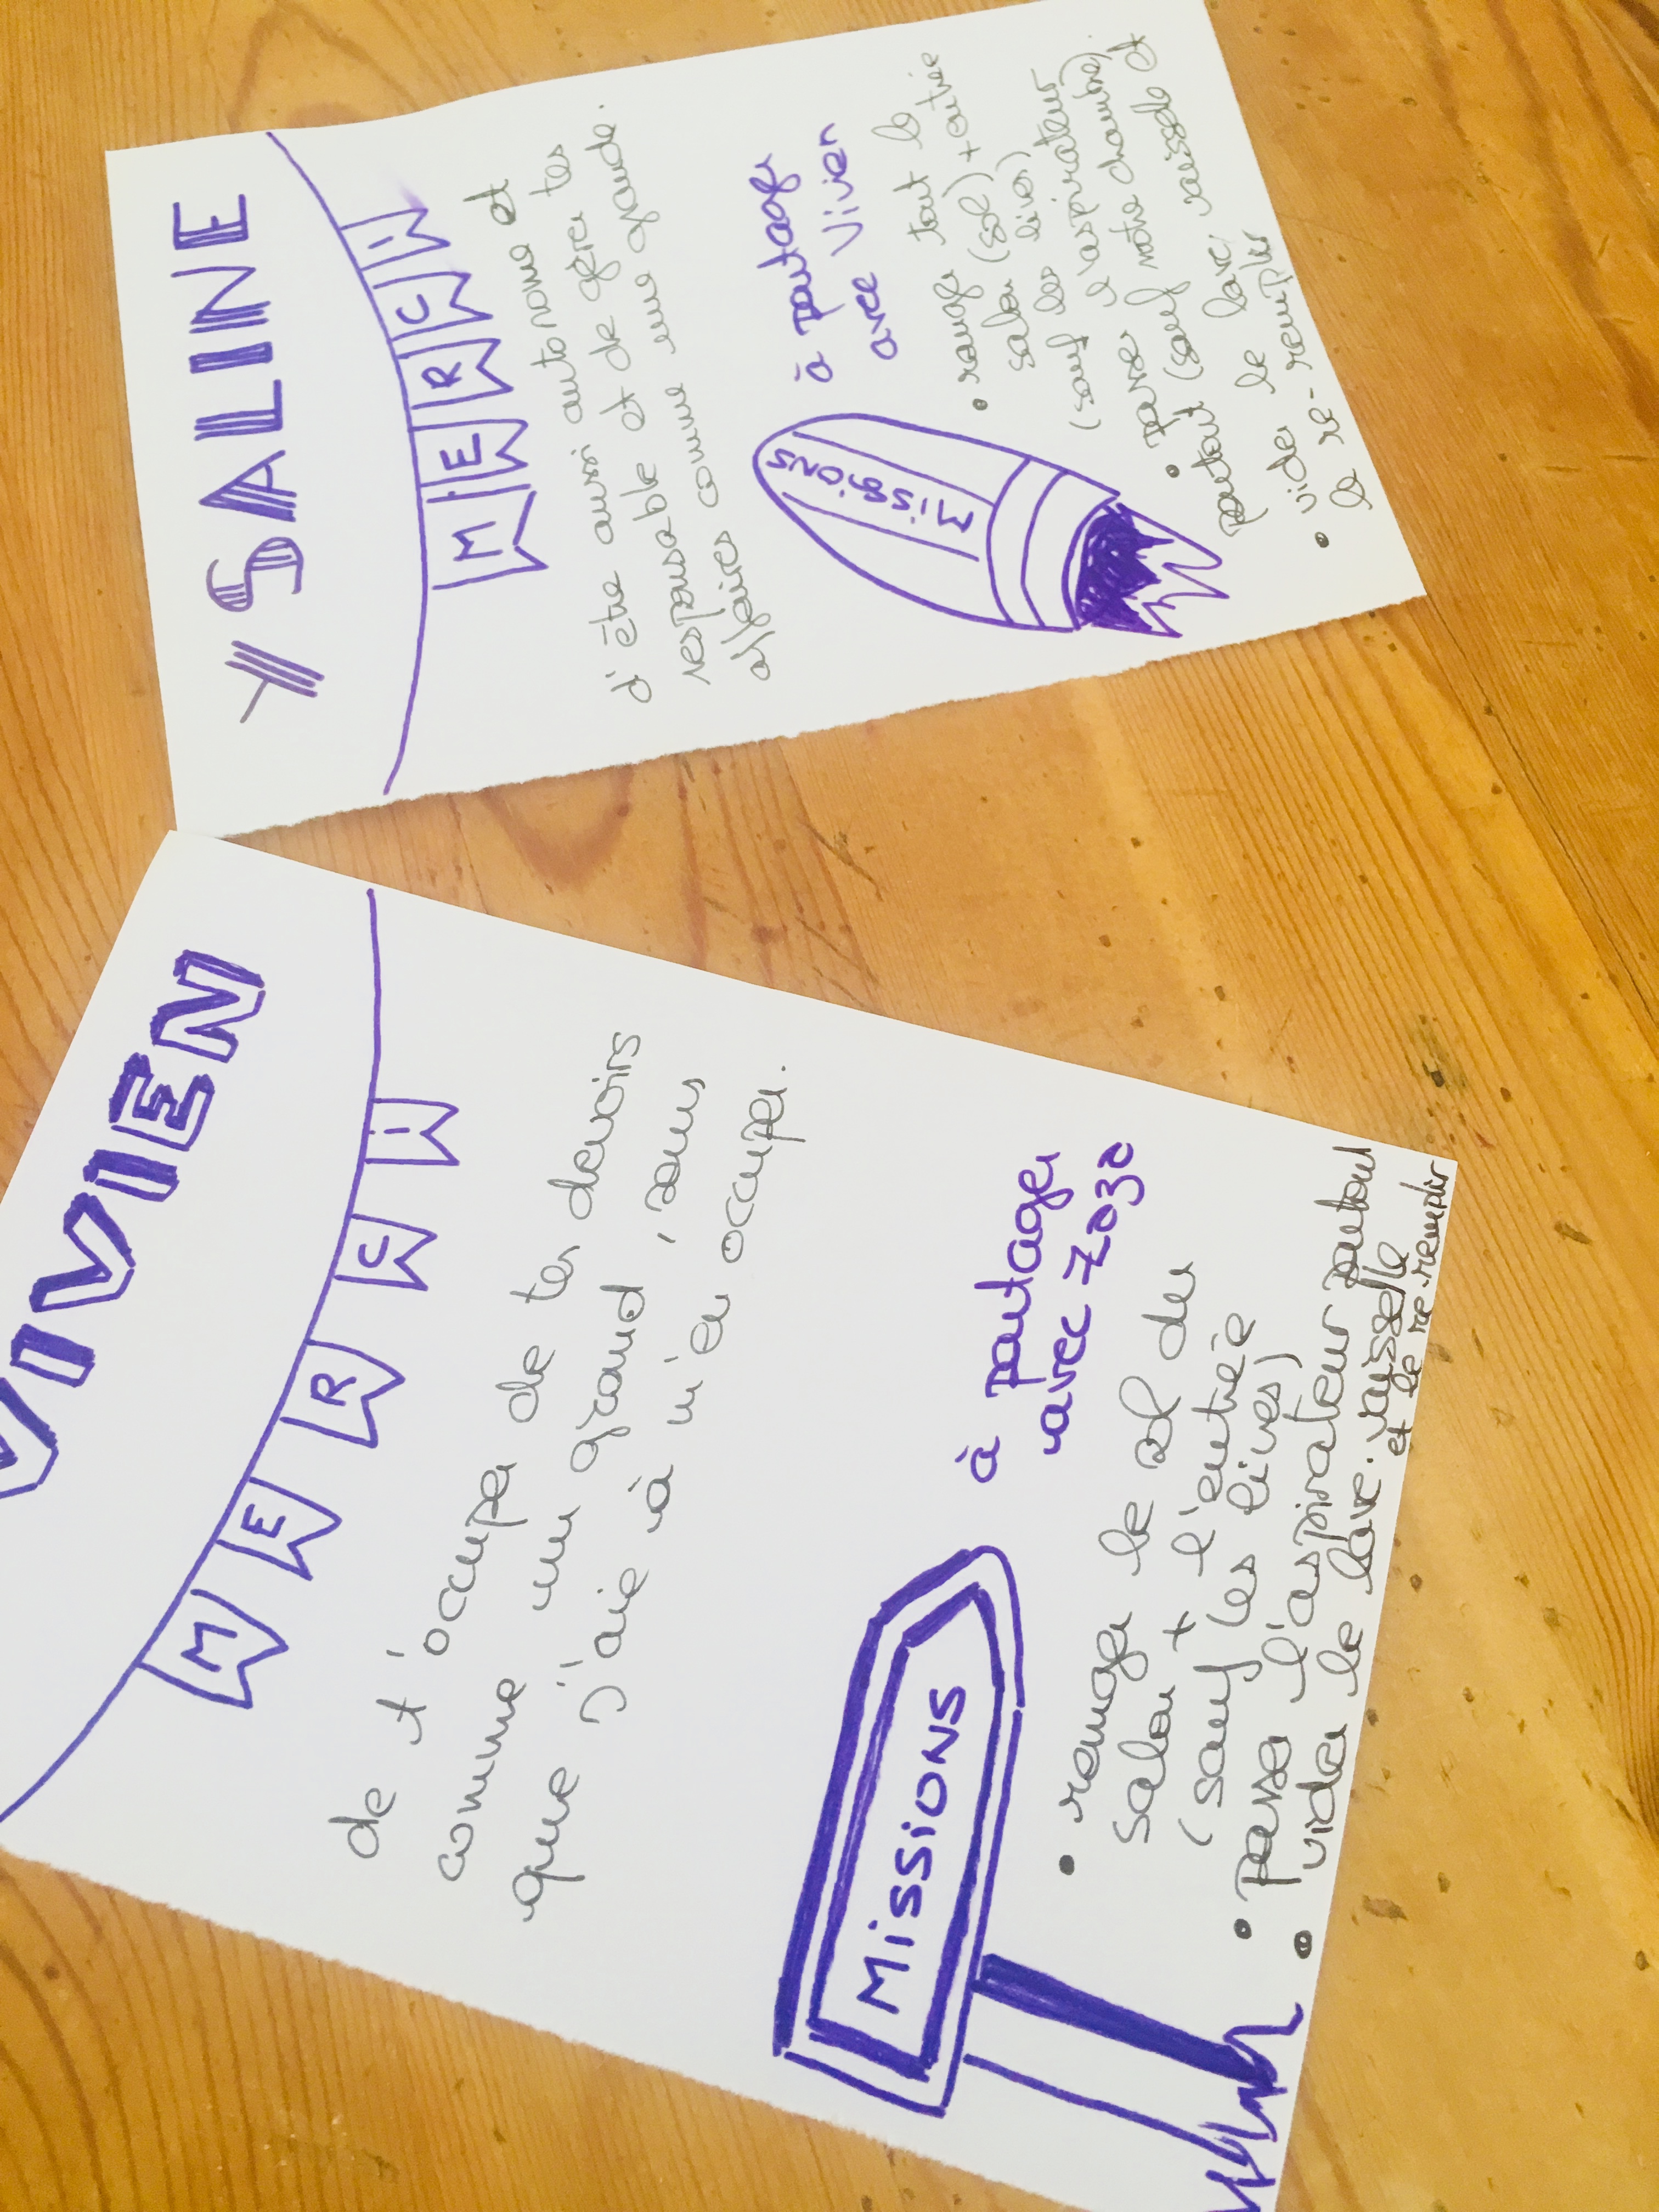 YSALINE
MERCI
d'être aussi autonome et
responsable et de gérer tes
affaires comme une grande.
Missions
à partager
avec Vivien
• ranger tout le
salon (sol) + entrée
(sauf les livres)
• passer l'aspirateur
partout (sauf notre chambre)
• vider le lave-vaisselle et
le re-remplir
VIVIEN
MERCI
de t'occuper de tes devoirs
comme un grand, sans
que j'aie à m'en occuper.
Missions
à partager
avec Zozo
• ranger le sol du
salon + l'entrée
(sauf les livres)
• passer l'aspirateur partout
• vider le lave-vaisselle
et le re-remplir